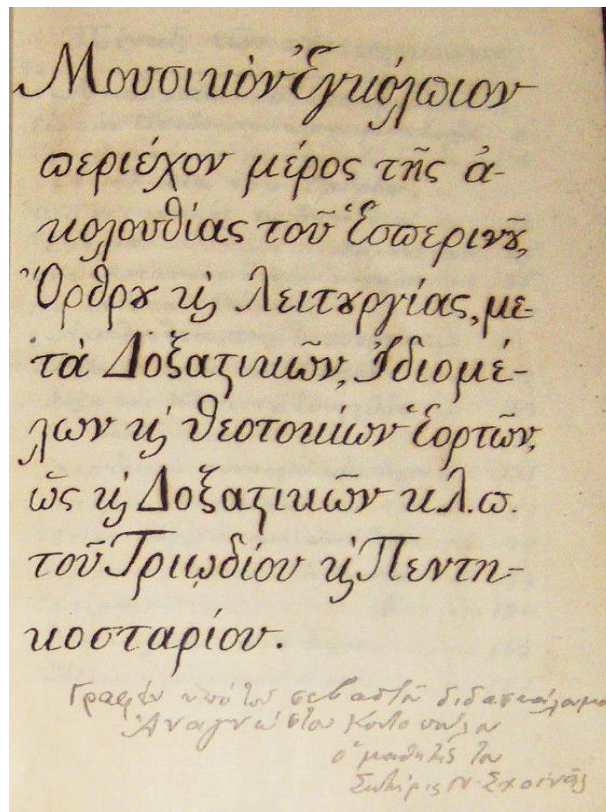 Μουσικὸν Ἐγκόλπιον
περιέχον μέρος τῆς ἀ-
κολουθίας τοῦ Ἑσπερινȣ͂,
Ὄρθρȣ ϗ̀ λειτȣργίας, με-
τὰ Δοξαϛικῶν, Ἰδιομέ-
λων ϗ̀ θεοτοκίων Ἑορτῶν,
ὡς ϗ̀ Δοξαϛικῶν κ.λ.π.
τοῦ Τριῳδίου ϗ̀ Πεντη-
κοσταρίου.
Γραφὲν ὑπὸ τοῦ σεβαστοῦ διδασκάλου μου
Ἀναγνώστου
ὁ μαθητής του
Σωτήρις Ν. Σχοινᾶς